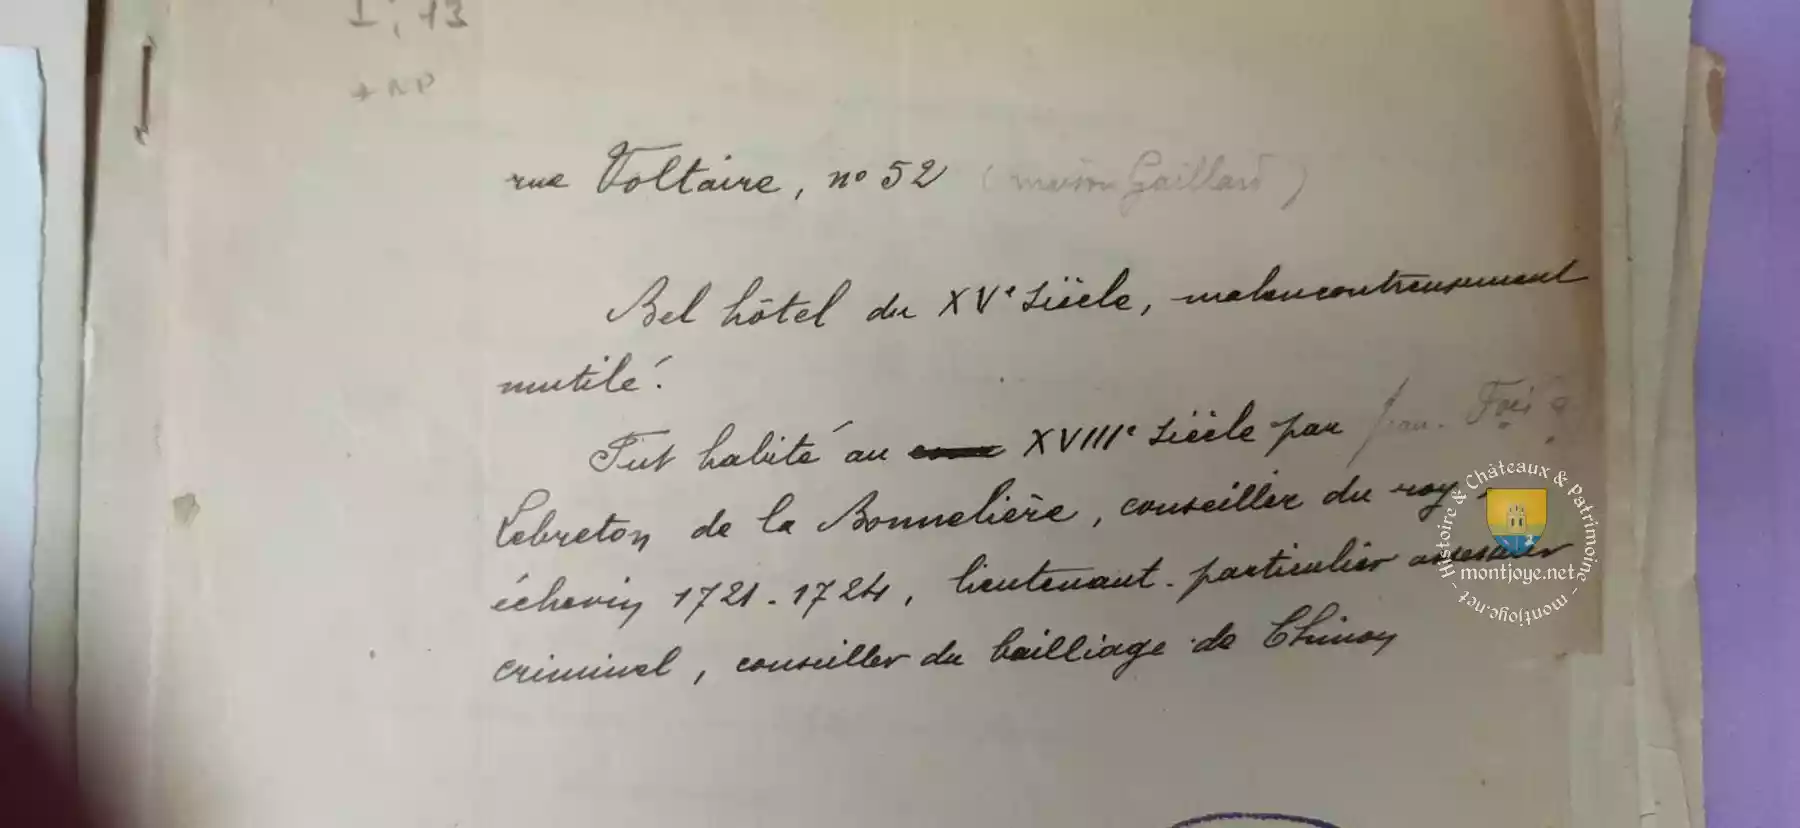 I, 13
* NP
rue Voltaire, n° 52 (maison Gaillard)
Bel hôtel du XVe siècle, malencontreusement
mutilé.
Fut habité au XVIIIe siècle par
Lebreton de la Bonnelière, conseiller du roy,
échevin 1721-1724, lieutenant-particulier assesseur
criminel, conseiller du bailliage de Chinon
Histoire & Châteaux & Patrimoine - montjoye.net - montjoye.net
montjoye.net